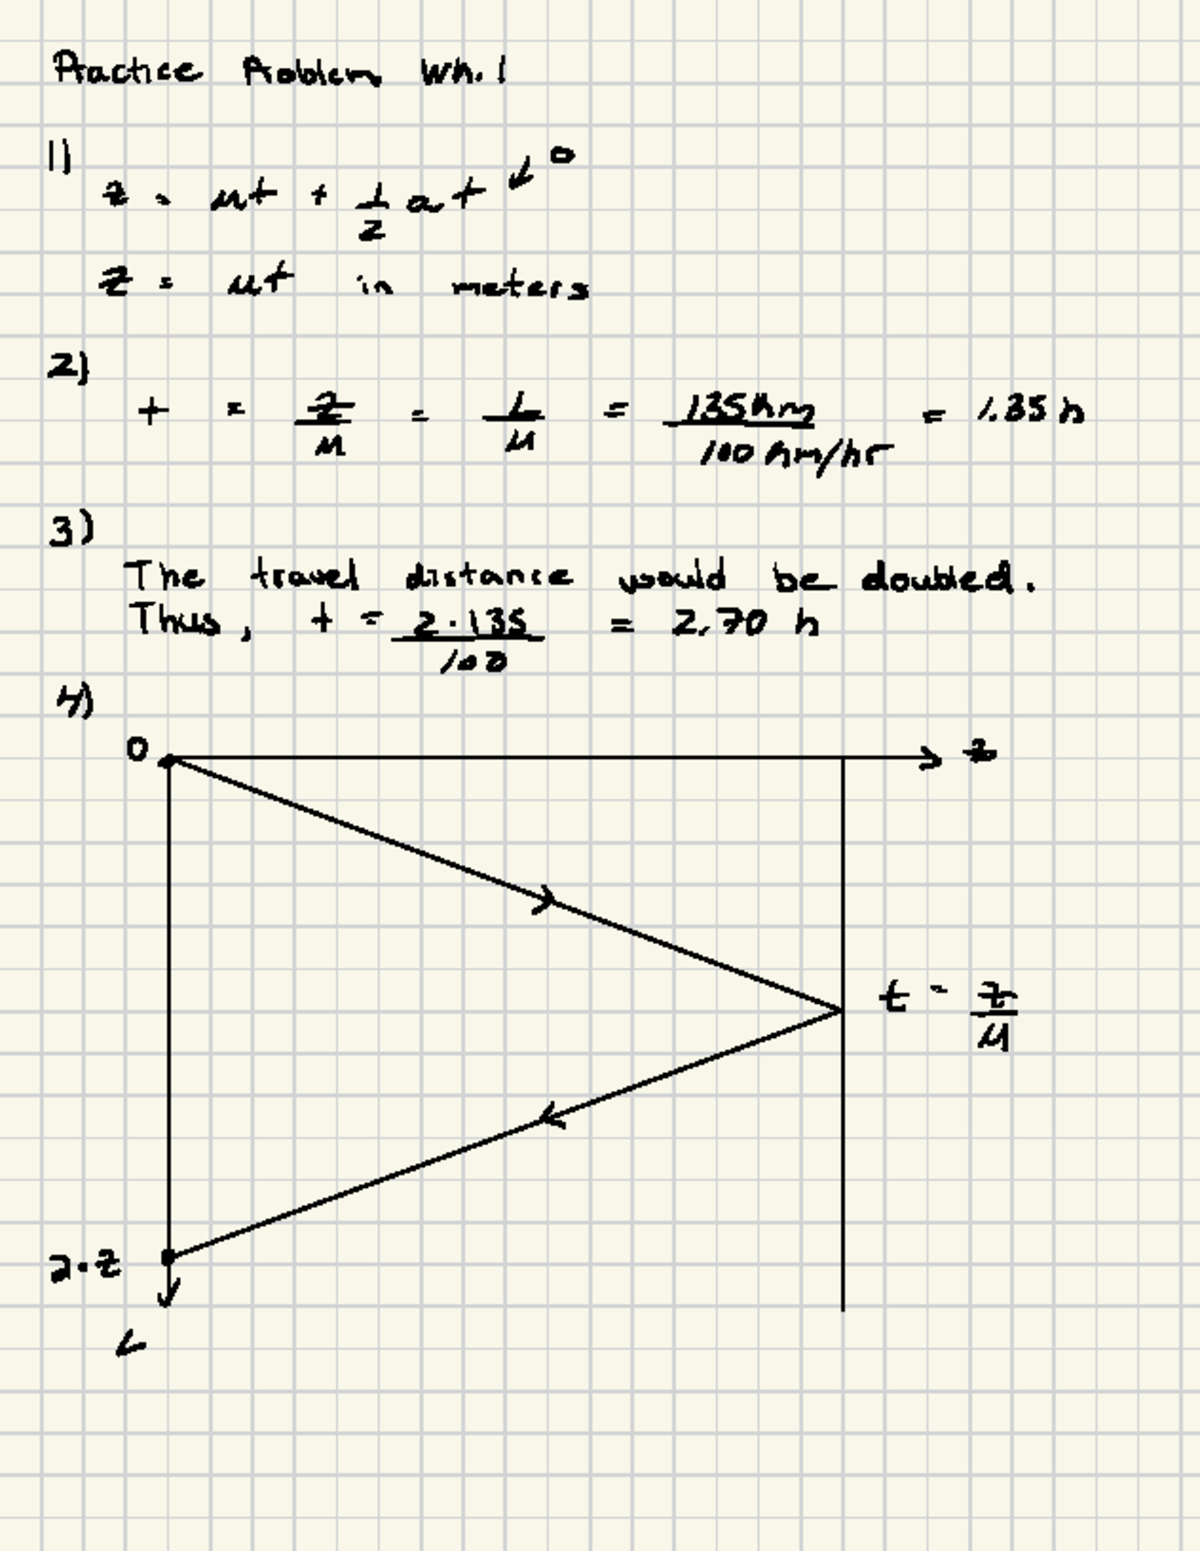 Practice Problem Wk. 1
1)
z = ut + 1/2 at ↙ 0
z = ut in meters
2)
t = z/u = L/u = 135km / 100 km/hr = 1.35 h
3)
The travel distance would be doubled.
Thus, t = 2·135 / 100 = 2.70 h
4)
0 z
t = z/u
2·z